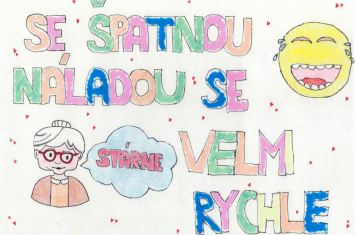 SE ŠPATNOU
NÁLADOU SE
STÁRNE
VELM
RYCHLE